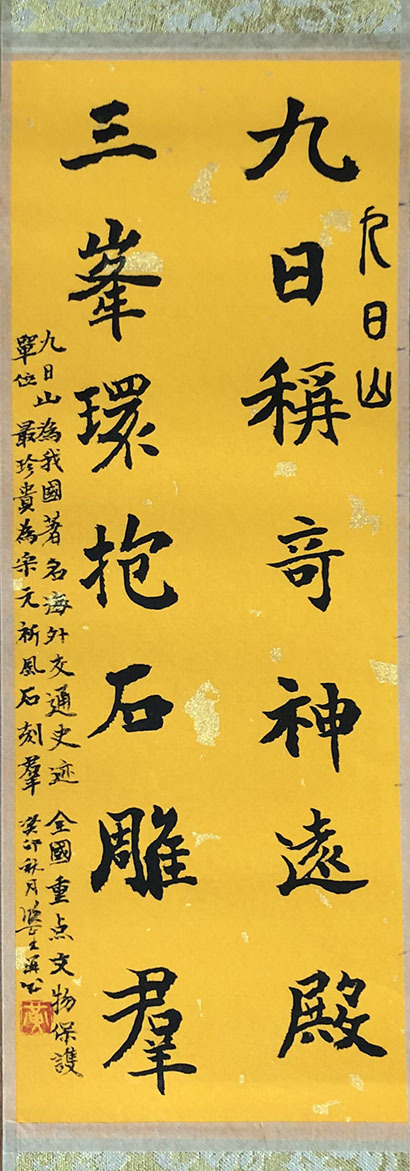 九日山
九日稱奇神遠殿
三峯環抱石雕羣
九日山為我國著名海外交通史迹 全國重点文物保護
單位 最珍貴為宋元祈風石刻羣 癸卯秋月
黃